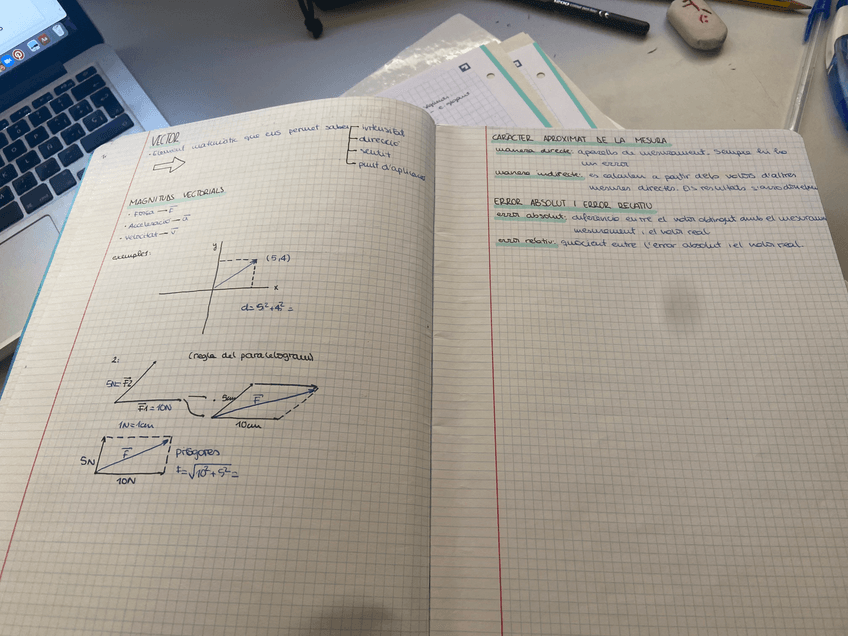 VECTOR
· Element matemàtic que ens permet saber
intensitat
direcció
sentit
punt d'aplicació
MAGNITUDS VECTORIALS
· Força → F
· Acceleració → a
· Velocitat → v
exemples:
y
(5,4)
x
d= 5²+4² =
2:
(regla del paralelogram)
5N= F2
F1 = 10N
1N=1cm
5cm
F
10cm
5N
F
10N
F= √10²+5² =
CARÀCTER APROXIMAT DE LA MESURA
manera directe: aparells de mesurament. Sempre hi ha
un error
manera indirecte: es calculen a partir dels valors d'altres
mesures directes. Els resultats
ERROR ABSOLUT I ERROR RELATIU
error absolut: diferència entre el valor obtingut amb el
mesurament i el valor real
error relatiu: quòcient entre l'error absolut i el valor real.